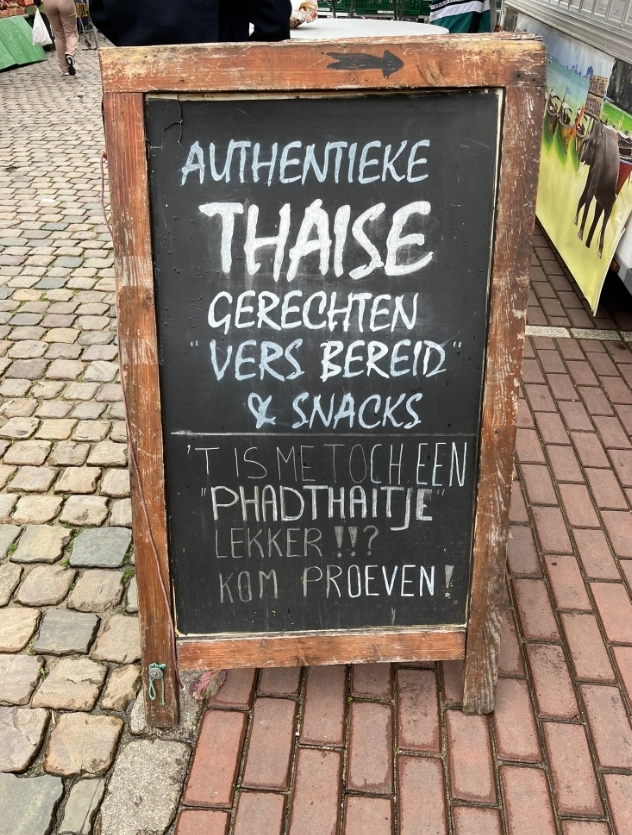 AUTHENTIEKE
THAISE
GERECHTEN
"VERS BEREID"
& SNACKS
'T IS ME TOCH EEN
"PHADTHAITJE"
LEKKER !!?
KOM PROEVEN!